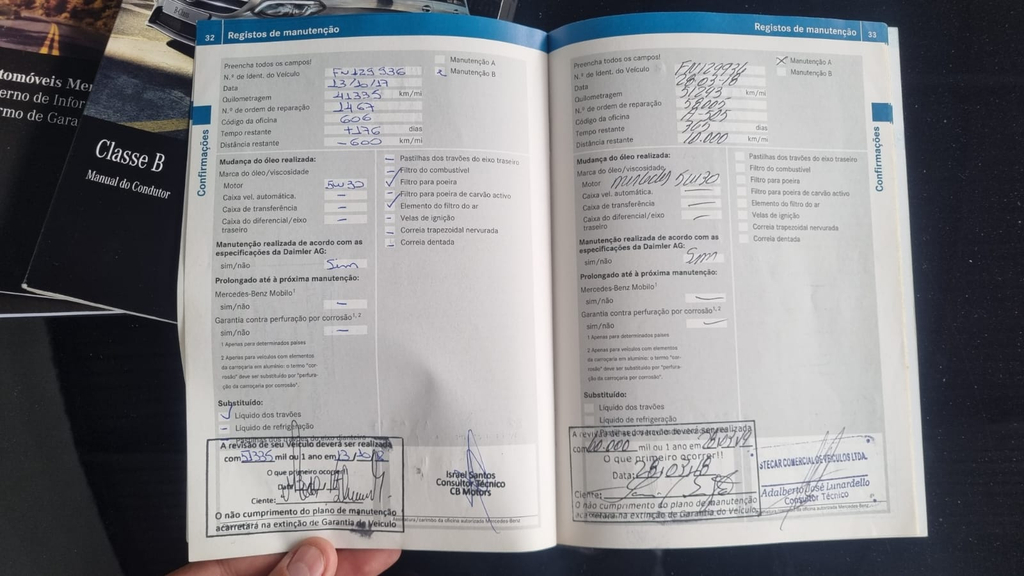 tomóveis Mer
erno de Infor
rmo de Gara
Classe B
Manual do Condutor
32 Registos de manutenção
Confirmações
Preencha todos os campos!
Manutenção A
N.º de Ident. do Veículo FV129936
Manutenção B
Data 13/10/17
Quilometragem 41335 km/mi
N.º de ordem de reparação 1467
Código da oficina 606
Tempo restante +176 dias
Distância restante -600 km/mi
Mudança do óleo realizada:
Marca do óleo/viscosidade
Motor 5W30
Caixa vel. automática. –
Caixa de transferência –
Caixa do diferencial/eixo traseiro –
Pastilhas dos travões do eixo traseiro
Filtro do combustível
Filtro para poeira
Filtro para poeira de carvão activo
Elemento do filtro do ar
Velas de ignição
Correia trapezoidal nervurada
Correia dentada
Manutenção realizada de acordo com as
especificações da Daimler AG:
sim/não Sim
Prolongado até à próxima manutenção:
Mercedes-Benz Mobilo¹
sim/não –
Garantia contra perfuração por corrosão¹,²
sim/não –
1 Apenas para determinados países
2 Apenas para veículos com elementos
da carroçaria em alumínio: o termo "cor-
rosão" deve ser substituído por "perfura-
ção da carroçaria por corrosão".
Substituído:
Líquido dos travões
Líquido de refrigeração
A revisão de seu Veículo deverá ser realizada
com 51335 mil ou 1 ano em 13/10/18
O que primeiro ocorrer
Data
Cliente:
O não cumprimento do plano de manutenção
acarretará na extinção de Garantia do Veículo
Israel Santos
Consultor Técnico
CB Motors
Assinatura/carimbo da oficina autorizada Mercedes-Benz
Registos de manutenção 33
Confirmações
Preencha todos os campos!
Manutenção A
N.º de Ident. do Veículo
Manutenção B
Data 28.07.18
Quilometragem 51.293 km/mi
N.º de ordem de reparação 58005
Código da oficina
Tempo restante 305 dias
Distância restante 10.000 km/mi
Mudança do óleo realizada:
Marca do óleo/viscosidade
Motor mercedes 5W30
Caixa vel. automática.
Caixa de transferência
Caixa do diferencial/eixo
traseiro
Pastilhas dos travões do eixo traseiro
Filtro do combustível
Filtro para poeira
Filtro para poeira de carvão activo
Elemento do filtro do ar
Velas de ignição
Correia trapezoidal nervurada
Correia dentada
Manutenção realizada de acordo com as
especificações da Daimler AG:
sim/não Sim
Prolongado até à próxima manutenção:
Mercedes-Benz Mobilo¹
sim/não
Garantia contra perfuração por corrosão¹,²
sim/não
1 Apenas para determinados países
2 Apenas para veículos com elementos
da carroçaria em alumínio: o termo "cor-
rosão" deve ser substituído por "perfura-
ção da carroçaria por corrosão".
Substituído:
Líquido dos travões
Líquido de refrigeração
A revisão de seu Veículo deverá ser realizada
com mil ou 1 ano em
O que primeiro ocorrer!!
Data: 28.07.18
Cliente:
O não cumprimento do plano de manutenção
acarretará na extinção de Garantia do Veículo
STECAR COMERCIAL DE VEICULOS LTDA.
Adalberto José Lunardello
Consultor Técnico
carimbo da oficina autorizada Mercedes-Benz